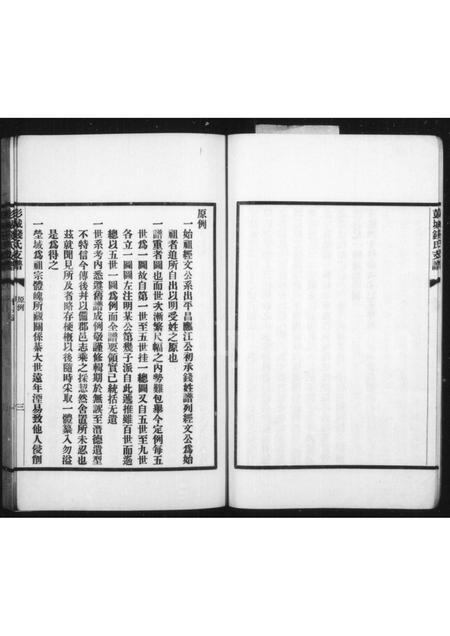 彭城錢氏支譜
原例
一始祖經文公系出平昌應江公初承錢姓譜列經文公為始
祖者追所自出以明受姓之原也
一譜重者圖也而世次漸繁尺幅之內勢難包舉今定例每五
世為一圖故自第一世至五世挂一總圖又自五世至九世
各立一圖圖左注明某公第幾子派自此遞推雖百世而遙
總以五世一圖為例而全譜要領實已統括无遺
一世系考內悉遵舊譜成例敬謹修輯期於無誤至潛德遺型
不特信今傳後并以備郡邑志乘之採忽然舍置所未忍也
茲就聞見所及者略存梗概以後隨時采取一體纂入勿溢
是為得之
一塋域為祖宗體魄所藏關係綦大世遠年湮易致他人侵削
彭城錢氏支譜
原例
三